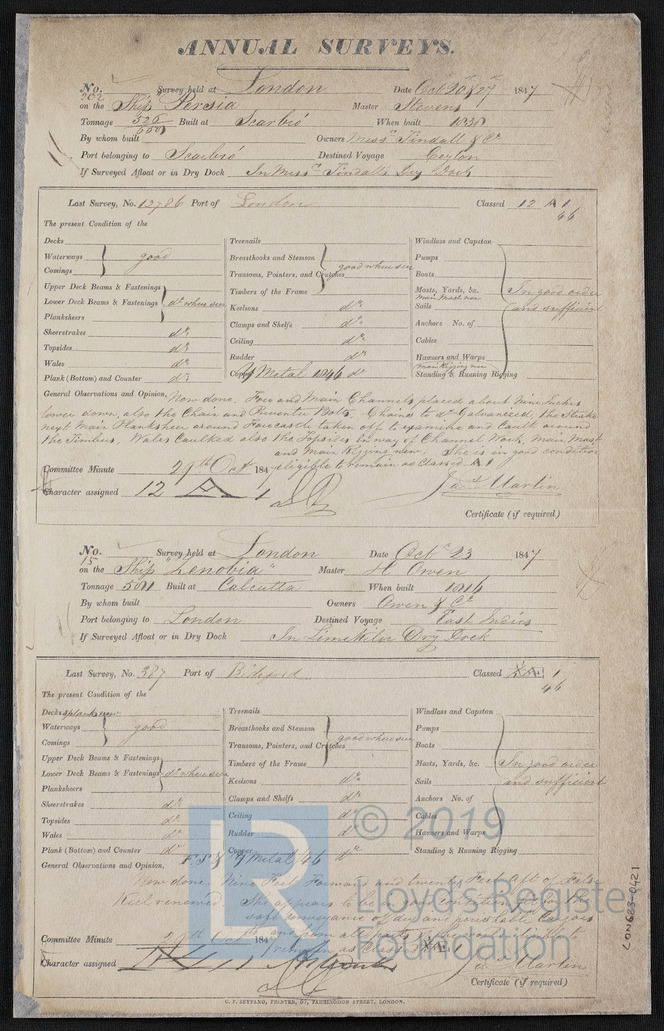 ANNUAL SURVEYS.
No. Survey held at London Date Octr 20 & 27 1847
on the Ship Persia Master Stevens
Tonnage 526 Built at Scarbro' When built
By whom built Owners Messrs Tindall & Co
Port belonging to Scarbro' Destined Voyage Ceylon
If Surveyed Afloat or in Dry Dock In Messrs Tindall's Dry Dock
Last Survey, No. 12786 Port of London Classed 12 A 1
46
The present Condition of the
Decks Treenails Windlass and Capstan
Waterways good Breasthooks and Stemson good where seen Pumps
Comings Transoms, Pointers, and Crutches Boats
Upper Deck Beams & Fastenings Timbers of the Frame Masts, Yards, &c. In good order
Main Mast new
Lower Deck Beams & Fastenings do where seen Keelsons do Sails and sufficient
Plankshears Clamps and Shelfs do Anchors No. of
Sheerstrakes do Ceiling do Cables
Topsides do Rudder do Hawsers and Warps
Wales do Copper Y Metal 1846 do Main Rigging new
Plank (Bottom) and Counter do Standing & Running Rigging
General Observations and Opinion, Now done. Fore and Main Channels placed about Nine Inches
lower down, also the Chain and Preventer Bolts. Chains to do Galvanized, the Strake
next Main Planksheer around Forecastle taken off to examine and Caulk around
the Timbers. Wales Caulked also the Topsides in way of Channel Work, Main Mast
and Main Rigging new. She is in good condition
Committee Minute 29th Oct 184 eligible to remain as Classed A 1
Character assigned 12 A 1 Jas Martin
Certificate (if required)
No. Survey held at London Date Octr 23 1847
15
on the Ship "Zenobia" Master H Owen
Tonnage Built at Calcutta When built
By whom built Owners Owen & Co
Port belonging to London Destined Voyage East Indies
If Surveyed Afloat or in Dry Dock In Limekiln Dry Dock
Last Survey, No. 387 Port of Bideford Classed 1
46
The present Condition of the
Decks Treenails Windlass and Capstan
Waterways good Breasthooks and Stemson good where seen Pumps
Comings Transoms, Pointers, and Crutches Boats
Upper Deck Beams & Fastenings Timbers of the Frame Masts, Yards, &c. In good order
Lower Deck Beams & Fastenings do where seen Keelsons do Sails and sufficient
Plankshears Clamps and Shelfs do Anchors No. of
Sheerstrakes do Ceiling do Cables
Topsides do Rudder do Hawsers and Warps
Wales do Copper do Standing & Running Rigging
Plank (Bottom) and Counter do Y Metal 46
General Observations and Opinion,
Now done. Nine Feet Forward and twenty Feet Aft of False
Keel renewed. She appears to be in
safe conveyance of dry and perishable Cargoes
Committee Minute 29th Oct 184
Character assigned Jas Martin
Certificate (if required)
C. F. SEYFANG, PRINTER, 57, FARRINGDON STREET, LONDON.
LON683-0421
© 2019
LR
Lloyd's Register
Foundation